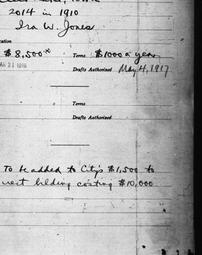 2014 in 1910
Ira W. Jones
$8,500 x Terms $1000 a year
Drafts Authorized May 4, 1917
Terms
Drafts Authorized
To be added to City's $1,500 to
costing $10,000